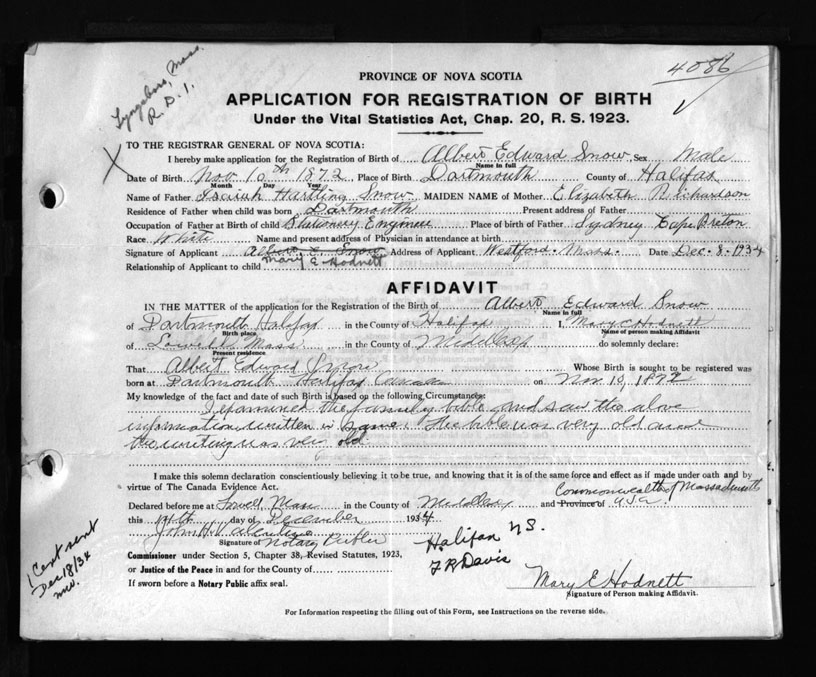 Tyngsboro, Mass.
R. D. 1.
4086
PROVINCE OF NOVA SCOTIA
APPLICATION FOR REGISTRATION OF BIRTH
Under the Vital Statistics Act, Chap. 20, R. S. 1923.
TO THE REGISTRAR GENERAL OF NOVA SCOTIA:
I hereby make application for the Registration of Birth of Albert Edward Snow Sex Male
Name in full
Date of Birth Nov 10th 1872 Place of Birth Dartmouth County of Halifax
Month Day Year
Name of Father Isaiah Hartling Snow MAIDEN NAME of Mother Elizabeth Richardson
Residence of Father when child was born Dartmouth Present address of Father
Occupation of Father at Birth of child Stationery Engineer Place of birth of Father Sydney Cape Breton
Race White Name and present address of Physician in attendance at birth
Signature of Applicant Albert E. Snow Address of Applicant Westford. Mass. Date Dec. 8. 1934
Mary E Hodnett
Relationship of Applicant to child
AFFIDAVIT
IN THE MATTER of the application for the Registration of the Birth of Albert Edward Snow
Name in full
of Dartmouth Halifax in the County of Halifax I, Mary E Hodnett
Birth place Name of person making Affidavit
of Lowell Mass in the County of Middlesex do solemnly declare:
Present residence
That Albert Edward Snow Whose Birth is sought to be registered was
born at Dartmouth Halifax Canada on Nov 10, 1872
My knowledge of the fact and date of such Birth is based on the following Circumstances:
I examined the family bible and saw the above
information written in same. The bible was very old and
the writing was very old.
I make this solemn declaration conscientiously believing it to be true, and knowing that it is of the same force and effect as if made under oath and by
virtue of The Canada Evidence Act.
Commonwealth of Massachusetts
Declared before me at Lowell Mass in the County of Middlesex and Province of USA
this 14th day of December 1934
John H.
Signature of Notary Public
Halifax N.S.
F R Davis
Commissioner under Section 5, Chapter 38, Revised Statutes, 1923,
or Justice of the Peace in and for the County of
If sworn before a Notary Public affix seal.
Mary E Hodnett
Signature of Person making Affidavit.
1 Cert sent
Dec 18/34
For Information respecting the filling out of this Form, see Instructions on the reverse side.